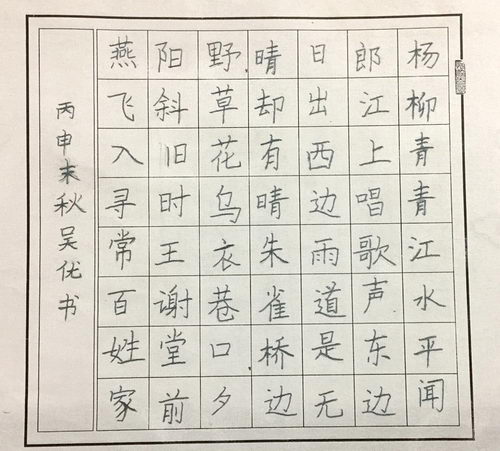 杨柳青青江水平闻
郎江上唱歌声东边
日出西边雨道是无
晴却有晴朱雀桥边
野草花乌衣巷口夕
阳斜旧时王谢堂前
燕飞入寻常百姓家
丙申末秋吴优书